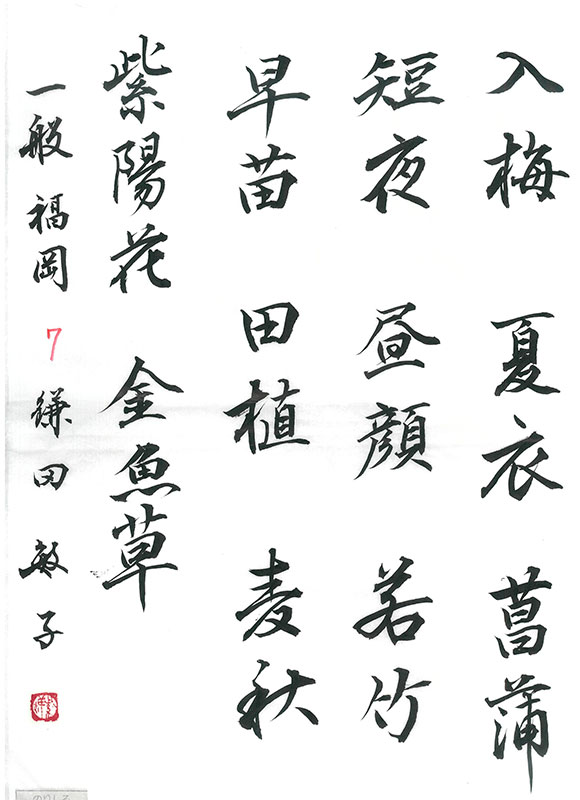 入梅 夏衣 菖蒲
短夜 昼顔 若竹
早苗 田植 麦秋
紫陽花 金魚草
一般 福岡 7 鎌田 敏子
のりしろ